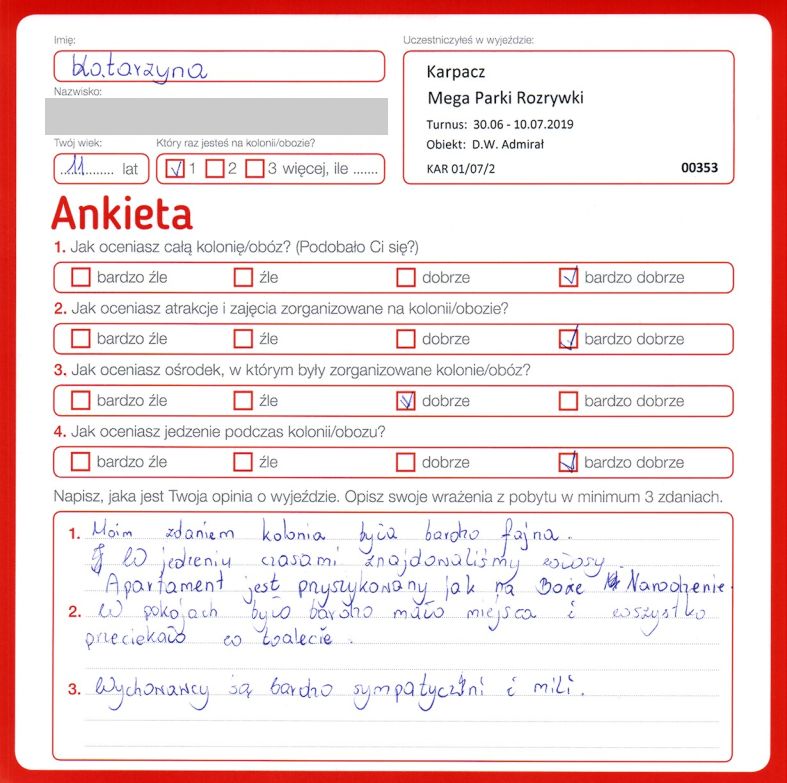 Imię:
Katarzyna
Nazwisko:
Twój wiek:
11 lat
Który raz jesteś na kolonii/obozie?
1 2 3 więcej, ile .......
Uczestniczyłeś w wyjeździe:
Karpacz
Mega Parki Rozrywki
Turnus: 30.06 - 10.07.2019
Obiekt: D.W. Admirał
KAR 01/07/2 00353
Ankieta
1. Jak oceniasz całą kolonię/obóz? (Podobało Ci się?)
bardzo źle źle dobrze bardzo dobrze
2. Jak oceniasz atrakcje i zajęcia zorganizowane na kolonii/obozie?
bardzo źle źle dobrze bardzo dobrze
3. Jak oceniasz ośrodek, w którym były zorganizowane kolonie/obóz?
bardzo źle źle dobrze bardzo dobrze
4. Jak oceniasz jedzenie podczas kolonii/obozu?
bardzo źle źle dobrze bardzo dobrze
Napisz, jaka jest Twoja opinia o wyjeździe. Opisz swoje wrażenia z pobytu w minimum 3 zdaniach.
1. Moim zdaniem kolonia była bardzo fajna.
W jedzeniu czasami znajdowaliśmy włosy.
Apartament jest przyszykowany jak na Boże Narodzenie.
2. W pokojach było bardzo mało miejsca i wszystko
przeciekało w toalecie.
3. Wychowawcy są bardzo sympatyczni i mili.